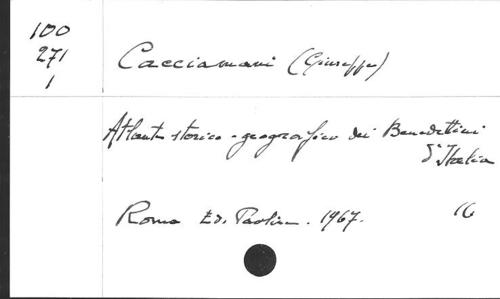 100
271
1
Cacciamani (Giuseppe)
Atlante storico-geografico dei Benedettini
d'Italia
Roma Ed. Paoline. 1967. 16